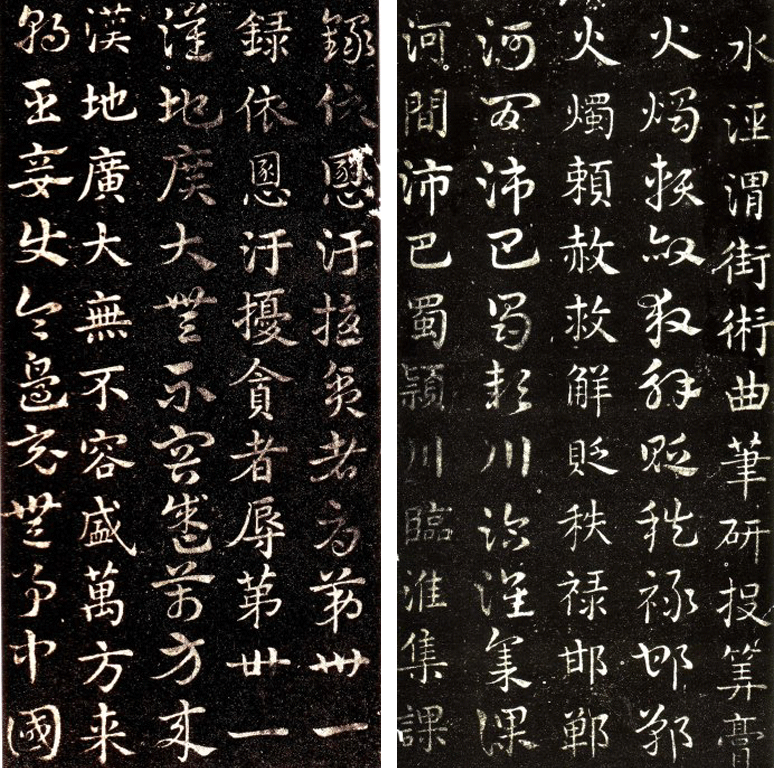 水涇渭街術曲筆研投筭膏
火燭賴赦救解貶秩祿邯鄲
火燭賴赦救解貶秩禄邯鄲
河間沛巴蜀潁川臨淮集課
河間沛巴蜀潁川臨淮集課
録依恩汙擾貪者辱第卅一
録依恩汙擾貪者辱第卅一
漢地廣大無不容盛萬方來
漢地廣大無不容盛萬方来
朝臣妾使令邊竟無事中國